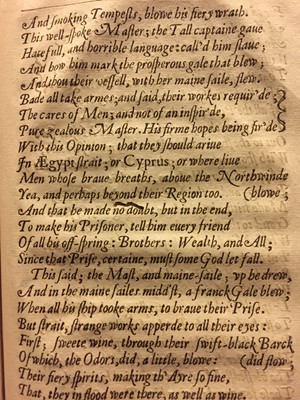 And smoking Tempests, blowe his fiery wrath.
This well-spoke Master; the Tall captaine gaue
Hatefull, and horrible language: call'd him slaue;
And bad him mark the prosperous gale that blew;
And how their vessell, with her maine saile, flew.
Bade all take armes; and said, their workes requir'de
The cares of Men; and not of an inspir'de,
Pure zealous Master. His firme hopes being fir'de
With this Opinion; that they should ariue
In Ægypt strait; or Cyprus; or where liue
Men whose braue breaths, aboue the Northwinde
Yea, and perhaps beyond their Region too. (blowe;
And that he made no doubt, but in the end,
To make his Prisoner, tell him euery friend
Of all his off-spring: Brothers: Wealth, and All;
Since that Prise, certaine, must some God let fall.
This said; the Mast, and maine-saile; vp he drew,
And in the maine sailes midd'st, a franck Gale blew;
When all his ship tooke armes, to braue their Prise.
But strait, strange works apperde to all their eyes:
First; sweete wine, through their swift-black Barck
Of which, the Odors did, a little, blowe: (did flow;
Their fiery spirits, making th'Ayre so fine,
That, they in flood were there, as well as wine.